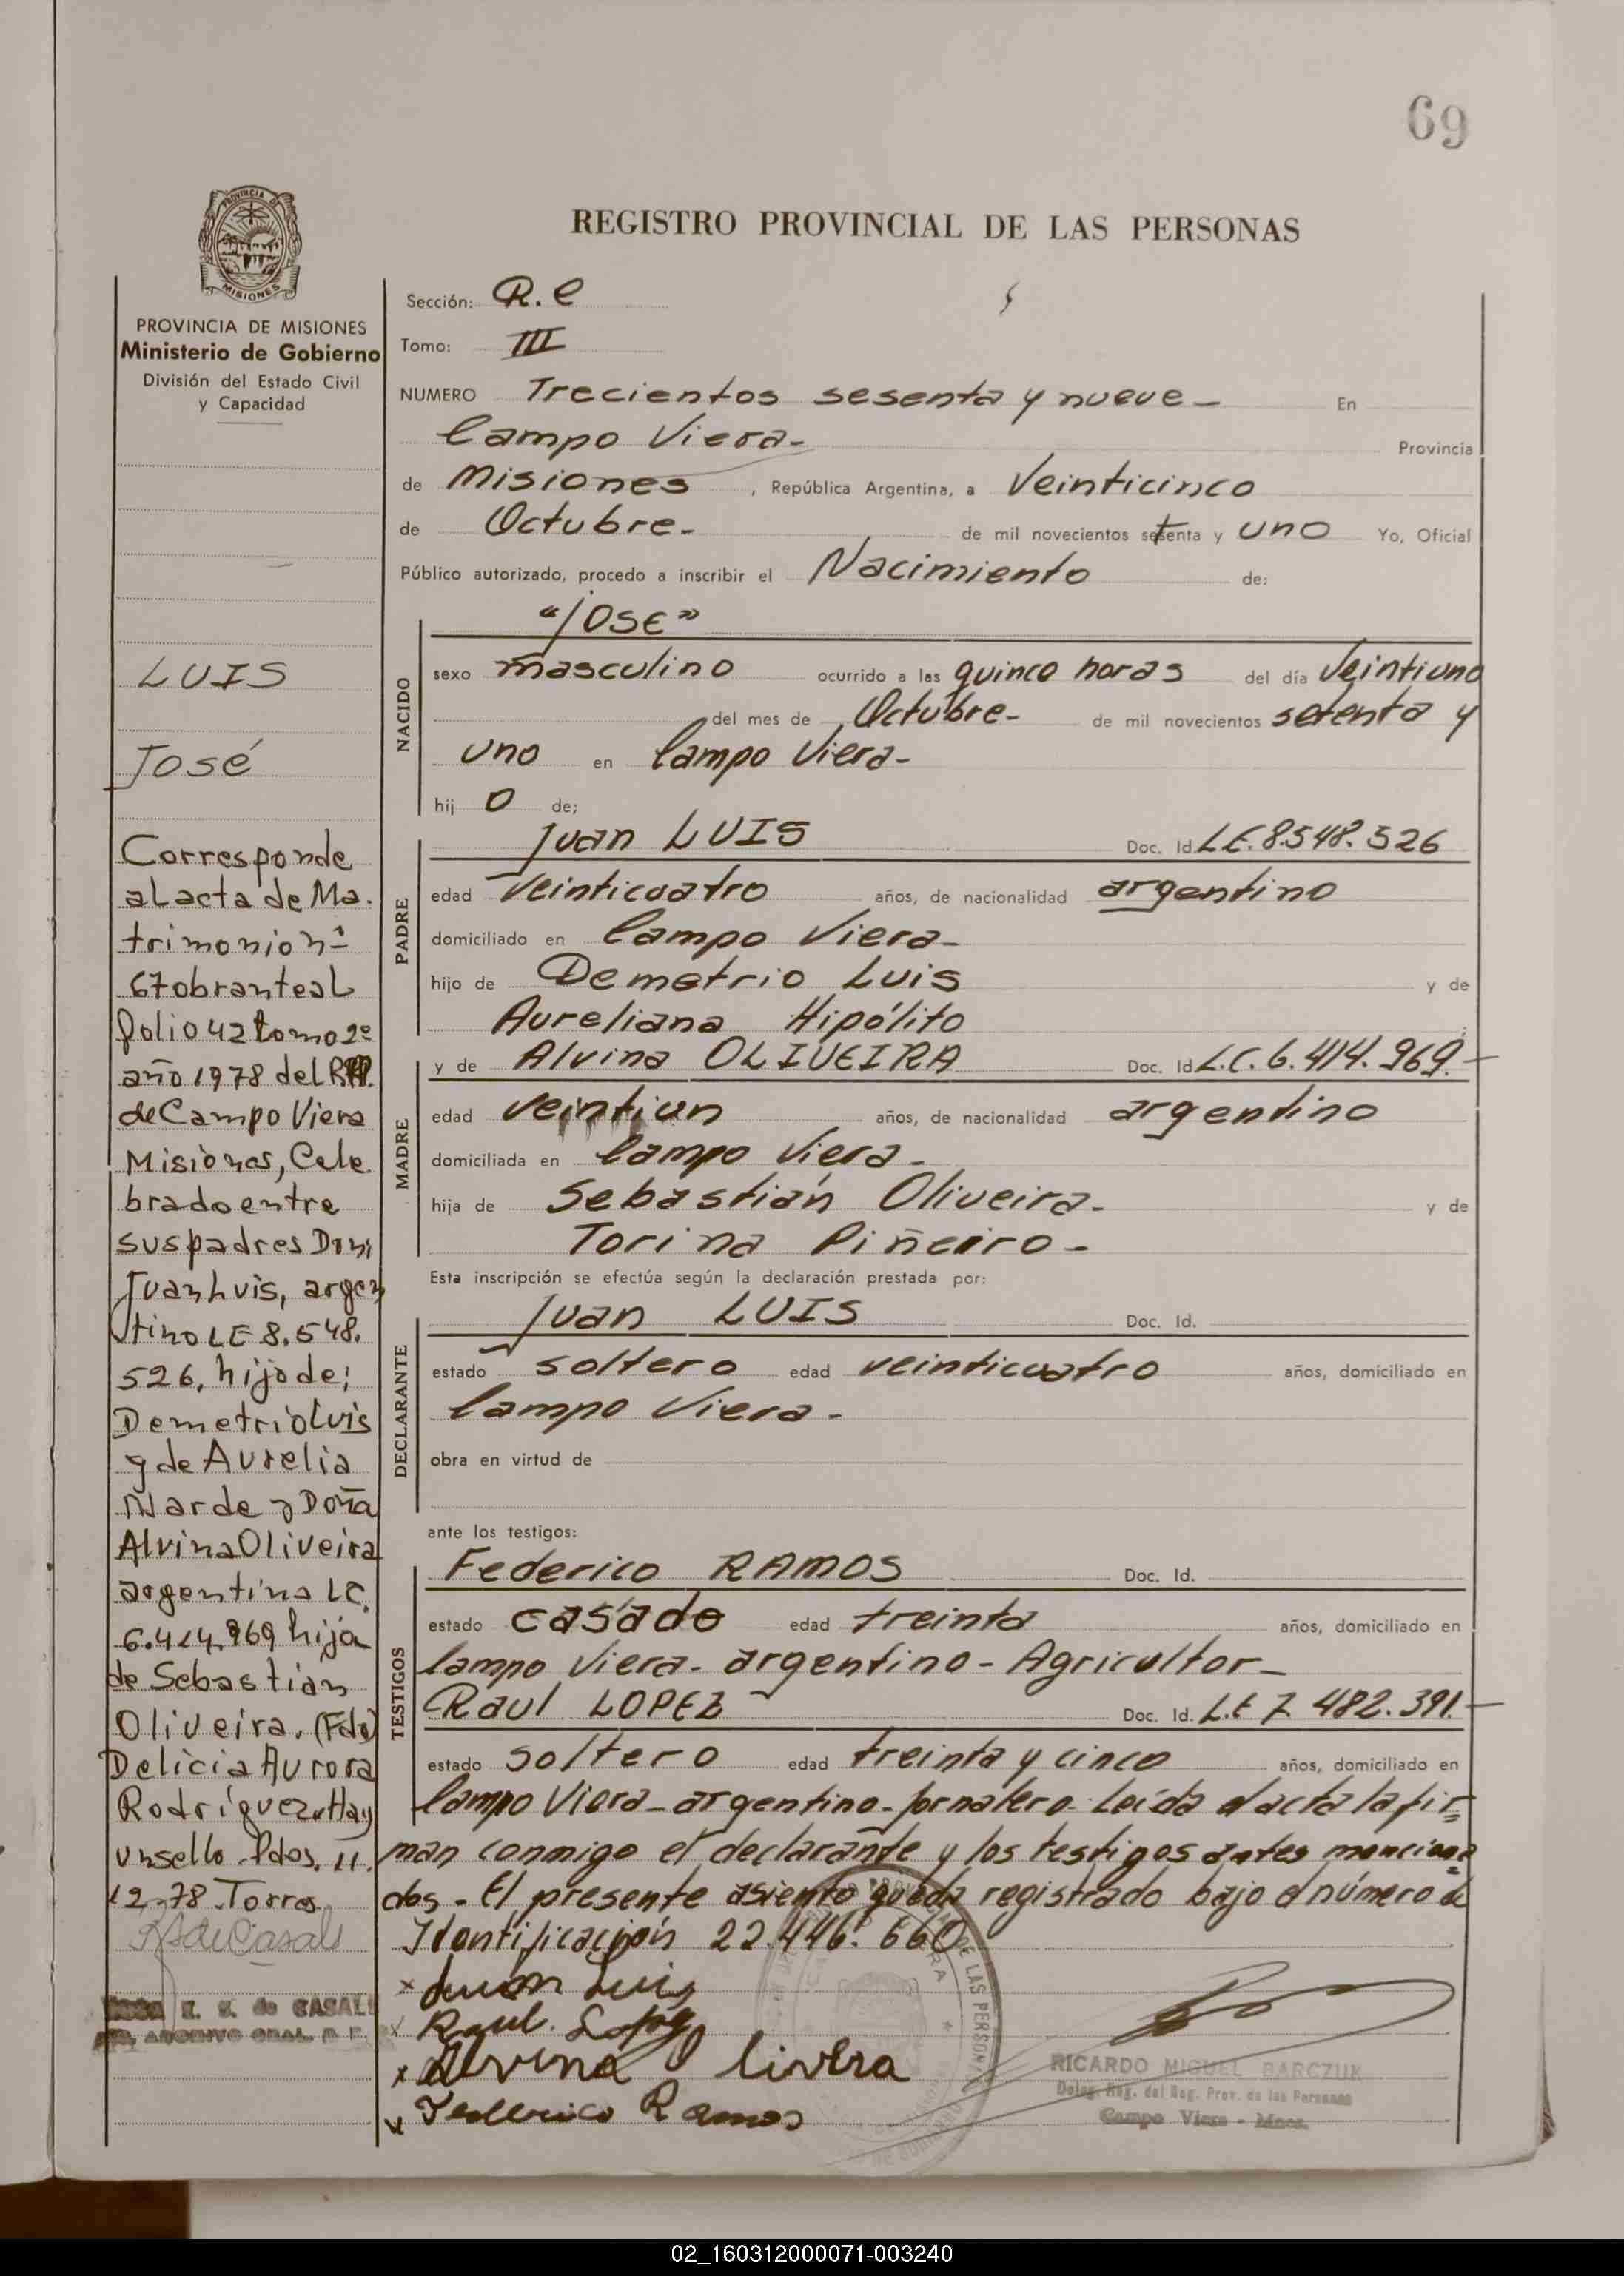 69
PROVINCIA DE
MISIONES
PROVINCIA DE MISIONES
Ministerio de Gobierno
División del Estado Civil
y Capacidad
LUIS
José
Corresponde
al acta de Ma.
trimonio nº
67 obrante al
folio 42 tomo 2º
año 1978 del
de Campo Viera
Misiones, Cele
brado entre
sus padres Don;
Juan Luis, argen
tino LE 8.548.
526, hijo de;
Demetrio Luis
y de Aurelia
Marde y Doña
Alvina Oliveira
argentina LC.
6.414.969 hija
de Sebastian
Oliveira. (Fdo)
Delicia Aurora
Rodríguez. Hay
un sello. Pdas. 11.
12-78. Torres
de CASALI
REGISTRO PROVINCIAL DE LAS PERSONAS
Sección: R.C
Tomo: III
NUMERO Trecientos sesenta y nueve - En
Campo Viera - Provincia
de Misiones, República Argentina, a Veinticinco
de Octubre - de mil novecientos setenta y uno Yo, Oficial
Público autorizado, procedo a inscribir el Nacimiento de:
"JOSE"
NACIDO
sexo masculino ocurrido a las quince horas del día Veintiuno
del mes de Octubre - de mil novecientos setenta y
uno en Campo Viera -
hijo de;
PADRE
Juan LUIS Doc. Id. L.E. 8.548.526
edad Veinticuatro años, de nacionalidad argentino
domiciliado en Campo Viera -
hijo de Demetrio Luis y de
Aureliana Hipólito
MADRE
y de Alvina OLIVEIRA Doc. Id. L.C. 6.414.969. -
edad veintiun años, de nacionalidad argentino
domiciliada en Campo Viera -
hija de Sebastián Oliveira - y de
Torina Piñeiro -
Esta inscripción se efectúa según la declaración prestada por:
DECLARANTE
Juan LUIS Doc. Id.
estado soltero edad veinticuatro años, domiciliado en
Campo Viera -
obra en virtud de
ante los testigos:
TESTIGOS
Federico RAMOS Doc. Id.
estado casado edad treinta años, domiciliado en
Campo Viera - argentino - Agricultor -
Raul LOPEZ Doc. Id. L.E 7.482.391. -
estado soltero edad treinta y cinco años, domiciliado en
Campo Viera - argentino - Jornalero - Leída el acta la fir=
man conmigo el declarante y los testigos antes menciona=
dos - El presente asiento queda registrado bajo el número de
Identificación 22.446.660
x Juan Luis
x Raul Lopez
x Alvina livera
x Federico Ramos
RICARDO MIGUEL BARCZUK
Deleg. Reg. del Reg. Prov. de las Personas
Campo Viera - Mnes.
02_160312000071-003240